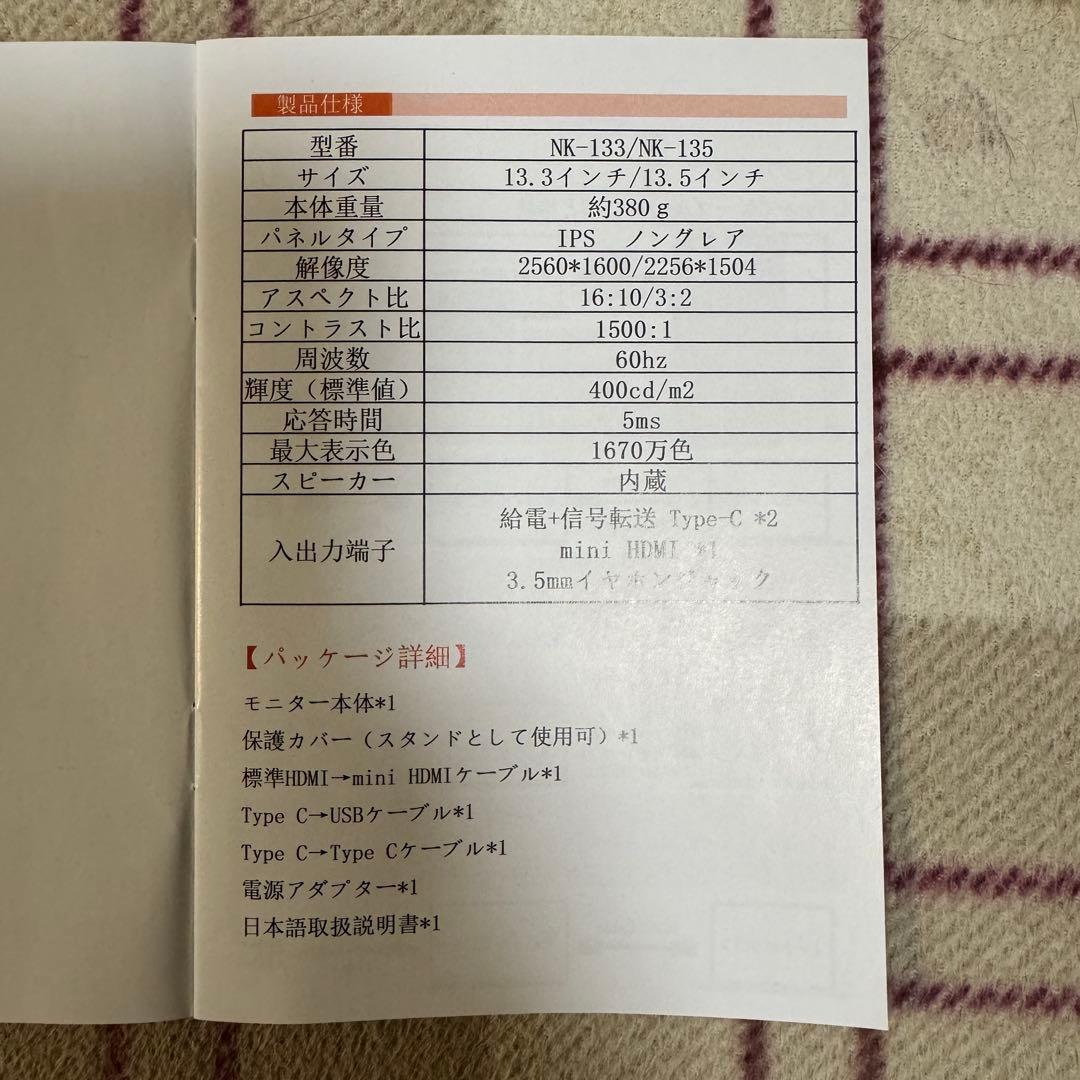 製品仕様
型番 NK-133/NK-135
サイズ 13.3インチ/13.5インチ
本体重量 約380ｇ
パネルタイプ IPS　ノングレア
解像度 2560*1600/2256*1504
アスペクト比 16:10/3:2
コントラスト比 1500:1
周波数 60hz
輝度（標準値） 400cd/m2
応答時間 5ms
最大表示色 1670万色
スピーカー 内蔵
入出力端子 給電+信号転送 Type-C *2
mini HDMI *1
3.5mmイヤホンジャック
【パッケージ詳細】
モニター本体*1
保護カバー（スタンドとして使用可）*1
標準HDMI→mini HDMIケーブル*1
Type C→USBケーブル*1
Type C→Type Cケーブル*1
電源アダプター*1
日本語取扱説明書*1